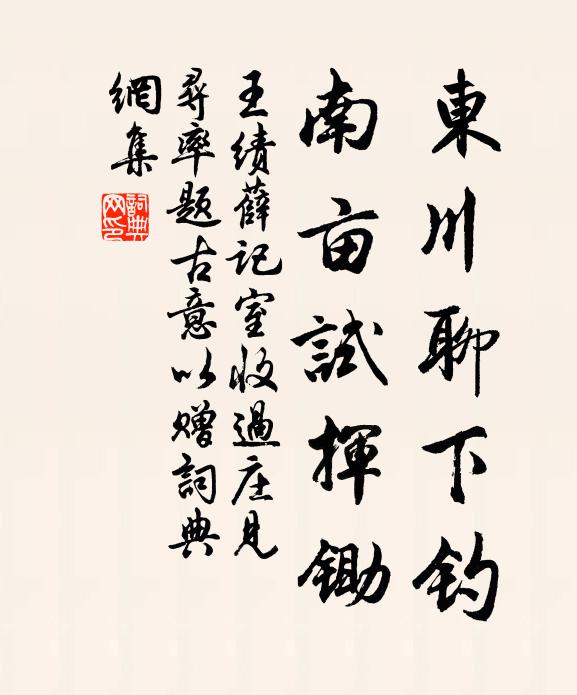 東川聊下釣
南亩試揮鋤
王績薛記室收過庄見
尋率題古意以赠詞典
網集
詞典
网印